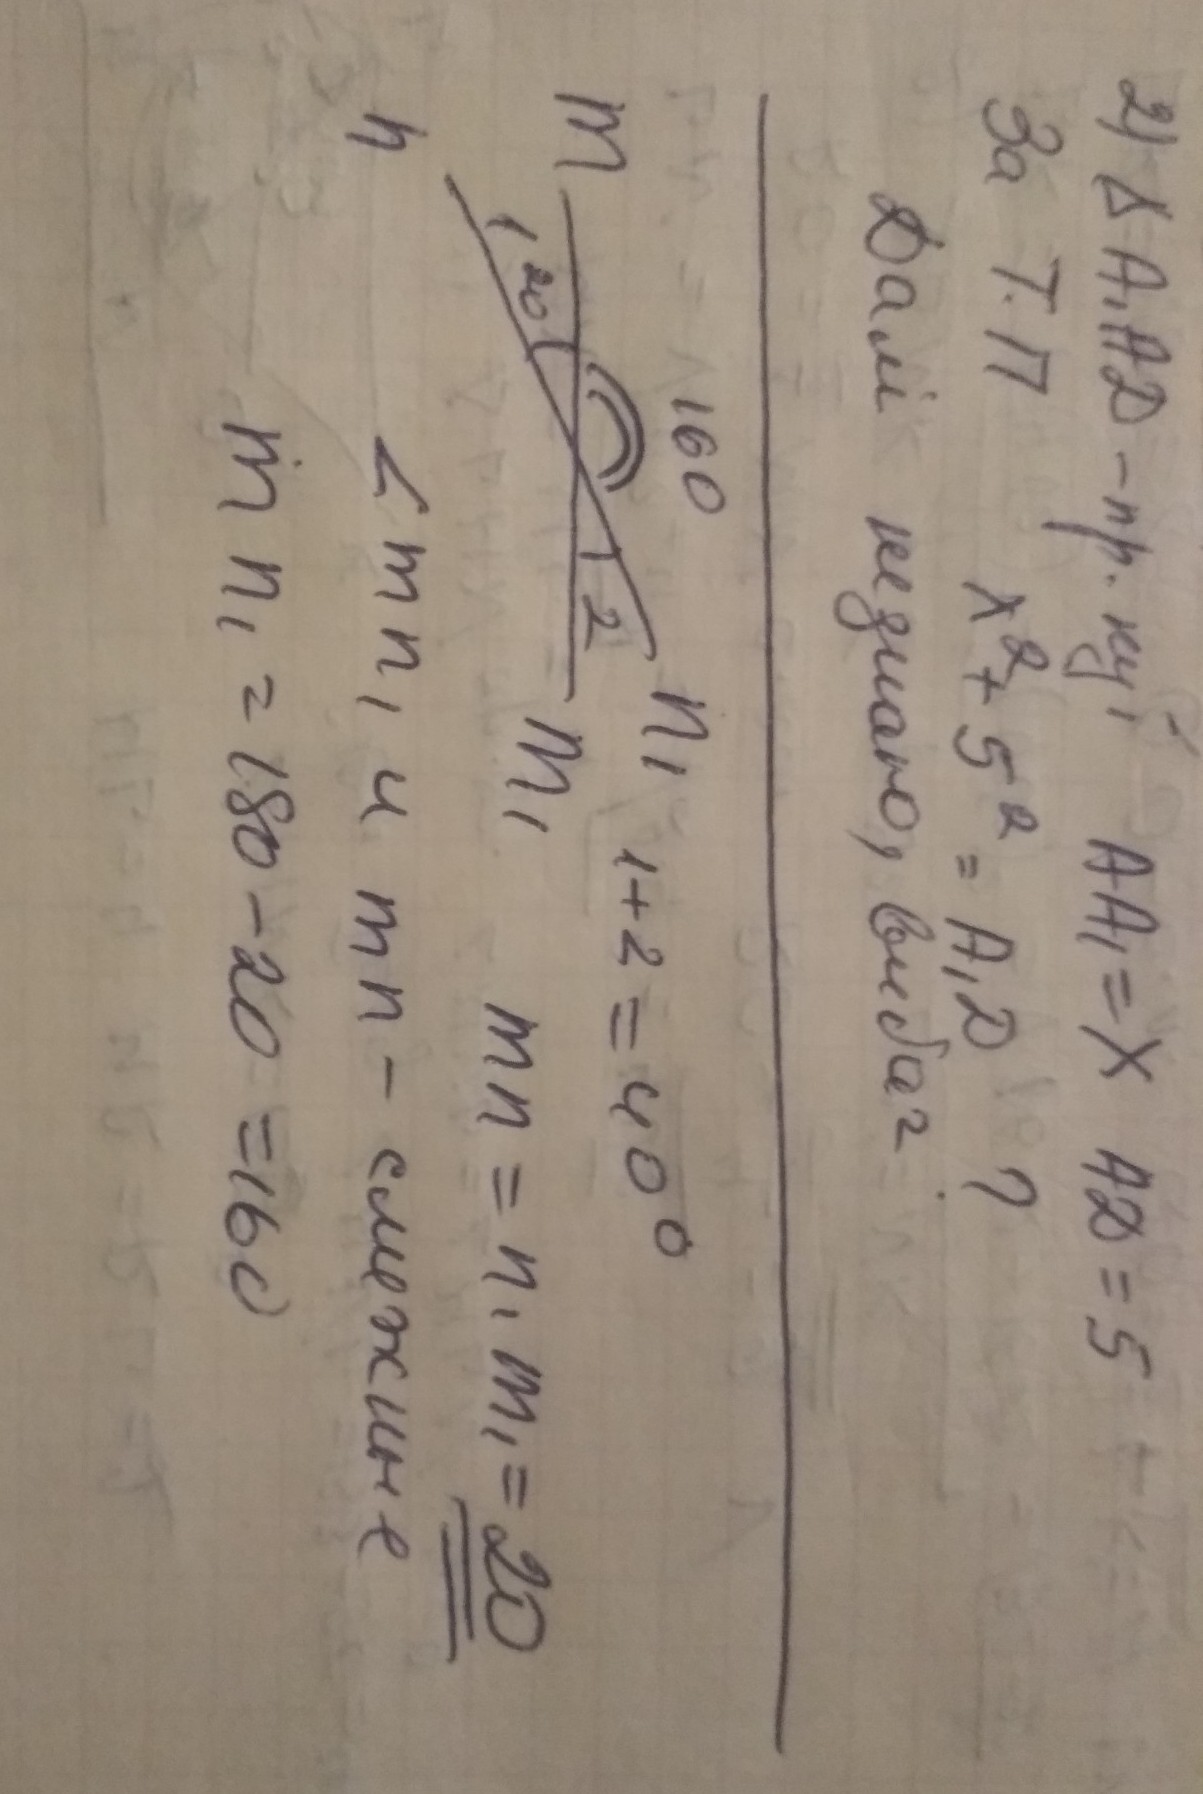 2) Δ A₁AD - пр. кут AA₁ = X AD = 5
За Т.П X² + 5² = A₁D ?
Далі не знаю, вибач
160
m n₁ 1+2 = 40°
1 20 2
n m₁ mn = n₁m₁ = 20
< mn₁ и mn - смежные
mn₁ = 180 - 20 = 160